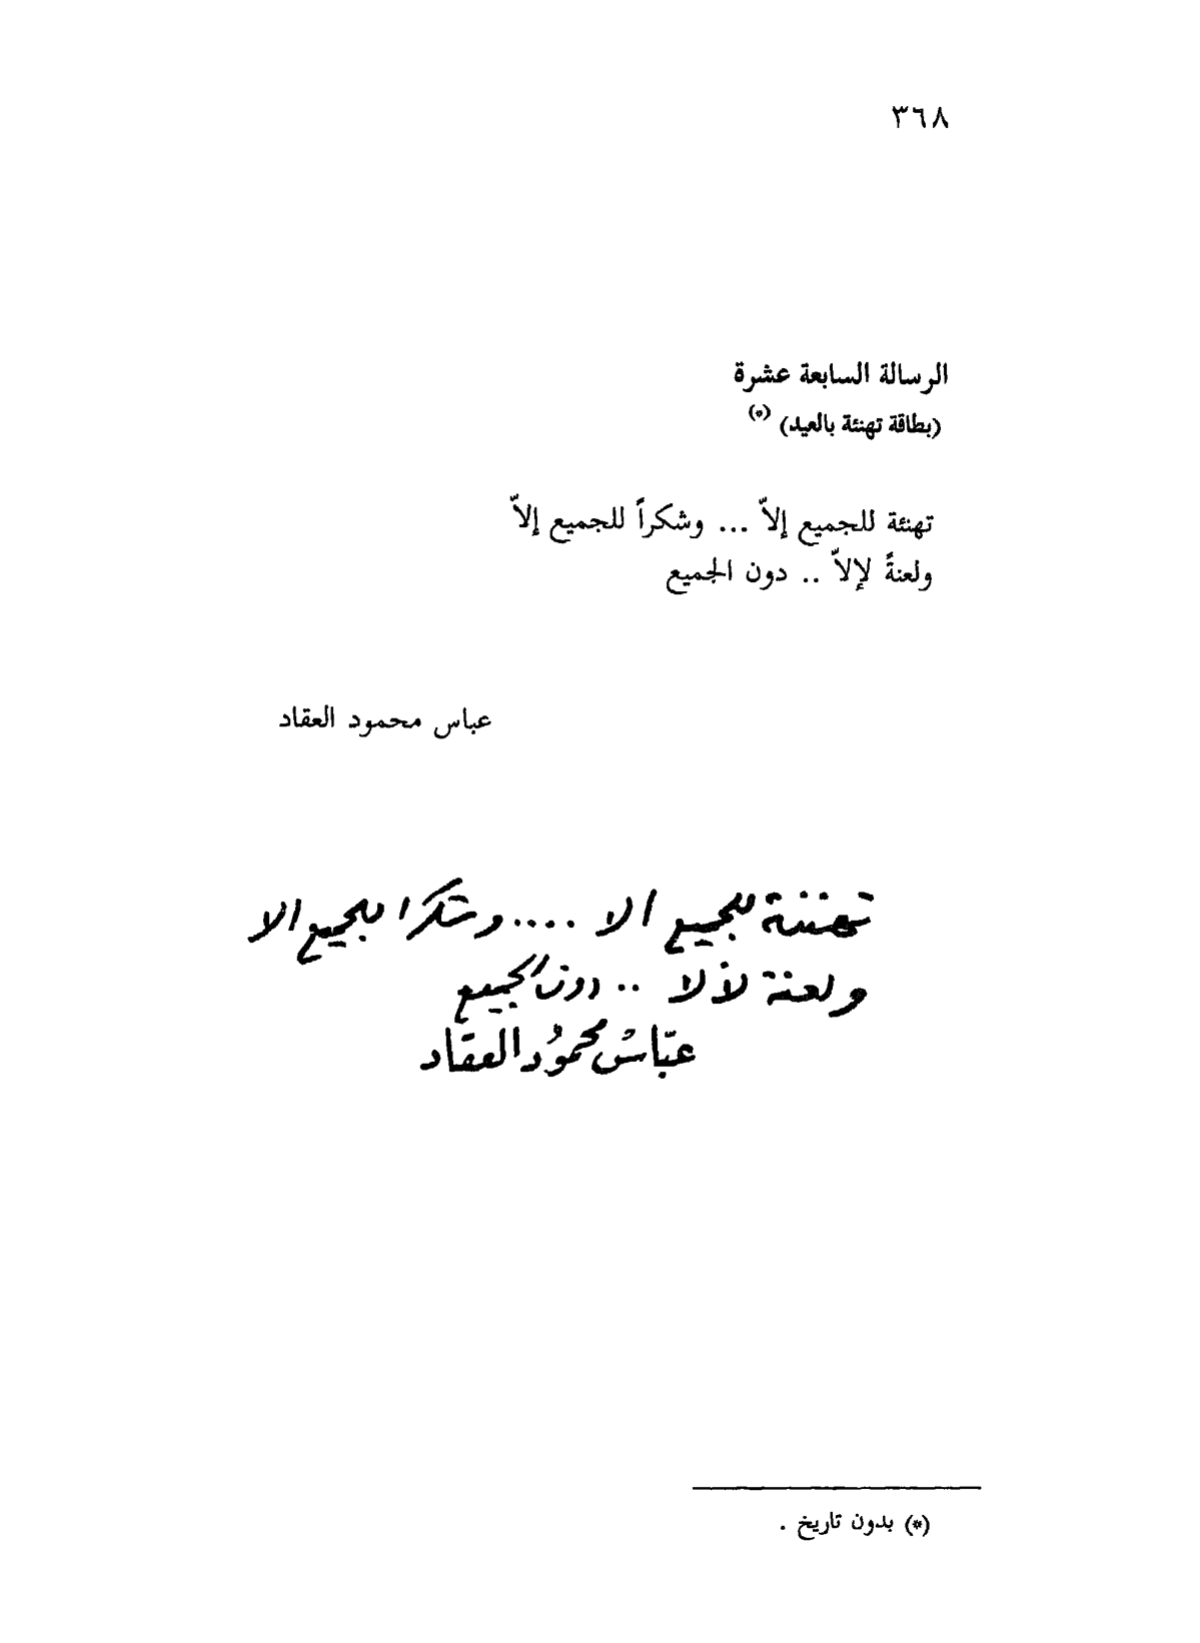 ٣٦٨
الرسالة السابعة عشرة
(بطاقة تهنئة بالعيد) (*)
تهنئة للجميع إلاّ ... وشكراً للجميع إلاّ
ولعنةً لإلاّ .. دون الجميع
عباس محمود العقاد
تهنئة للجميع الا .... وشكرا للجميع الا
ولعنة لألا .. دون الجميع
عبّاسْ محمُود العقاد
(*) بدون تاريخ .